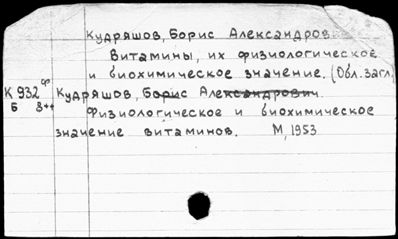 Кудряшов, Борис Александров
Витамины, их физиологическое
и биохимическое значение. (Обл. загл.)
К 932ф Кудряшов, Борис Александрович.
Б
Физиологическое и биохимическое
значение витаминов. М, 1953